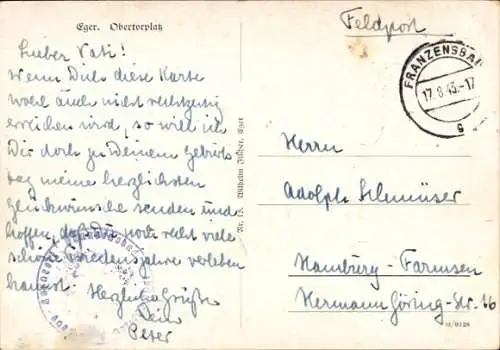 Eger. Obertorplatz
Lieber Vati!
Wenn Dich diese Karte
wohl auch nicht rechtzeitig
erreichen wird, so will ich
Dir doch zu Deinem Geburts
tag meine herzlichsten
Glückwünsche senden und
hoffen, daß Du noch recht viele
schöne Friedensjahre verleben
kannst. Herzliche Grüße
Dein
Peter
Nr. 15. Wilhelm Fischer, Eger
Feldpost
FRANZENSBA
17.8.43.-17
g
Herrn
Adolph
Hamburg-Farmsen
Hermann Göring-Str. 16